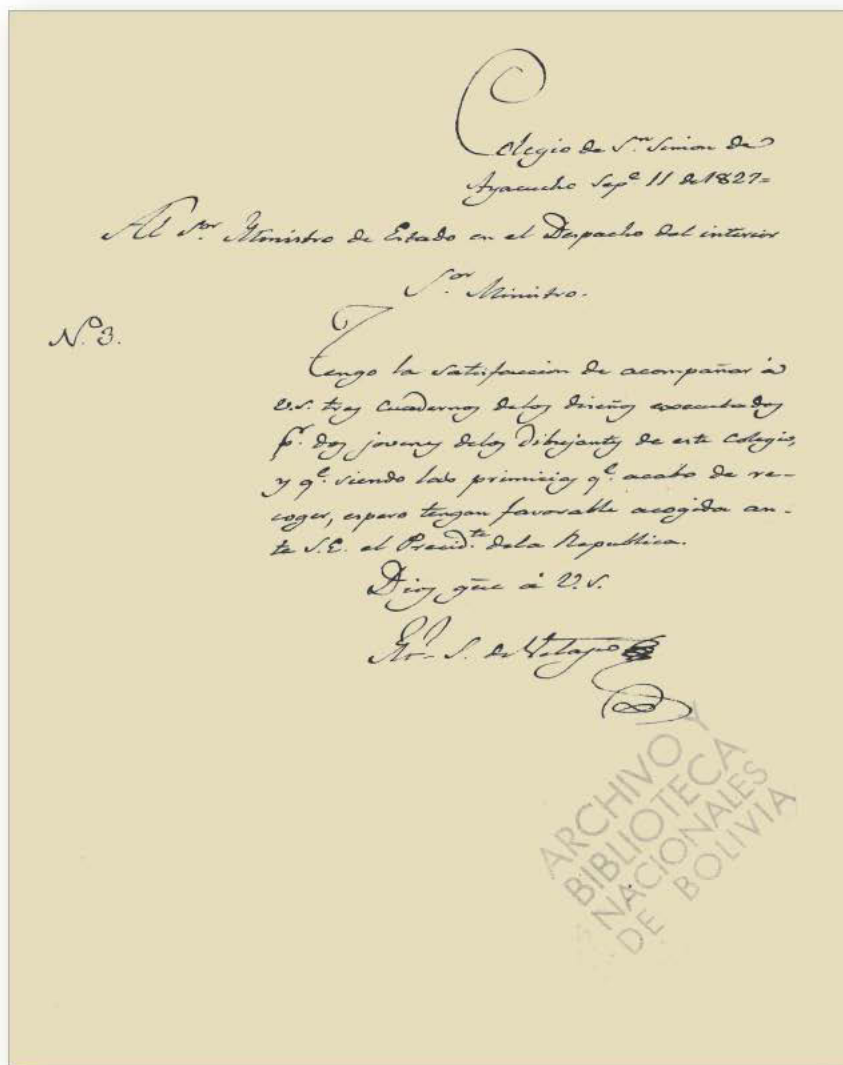 Colegio de Sn. Simon de
Ayacucho Sepe. 11 de 1827=
Al Sor. Ministro de Estado en el Despacho del interior
Sor. Ministro.
No. 3.
Tengo la satisfaccion de acompañar à
V.S. tres cuadernos delos diseños executados
pr. dos jovenes delos dibujantes de este Colegio,
y qe. siendo las primicias qe. acabo de re-
coger, espero tengan favorable acogida an-
te S.E. el Precidte. dela Republica.
Dios gue à V.S.
S. de
ARCHIVO Y
BIBLIOTECA
NACIONALES
DE BOLIVIA